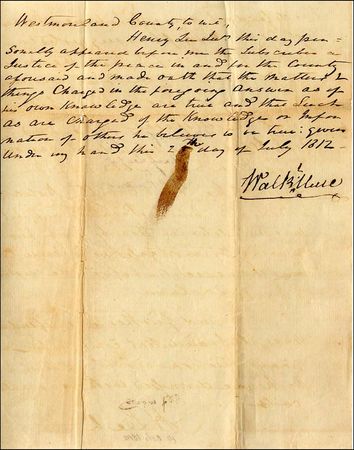 Westmoreland County, to wit,
Henry Lee this day per=
sonally appeared before me the Subscriber a
Justice of the peace in and for the County
aforesaid and made oath that the matters &
things Charged in the foregoing Answer as of
his own Knowledge are true and that Such
as are charged of the Knowledge or Infor
mation of others he believes to be true: given
Under my hand this day of July 1812-
Walkr Muse